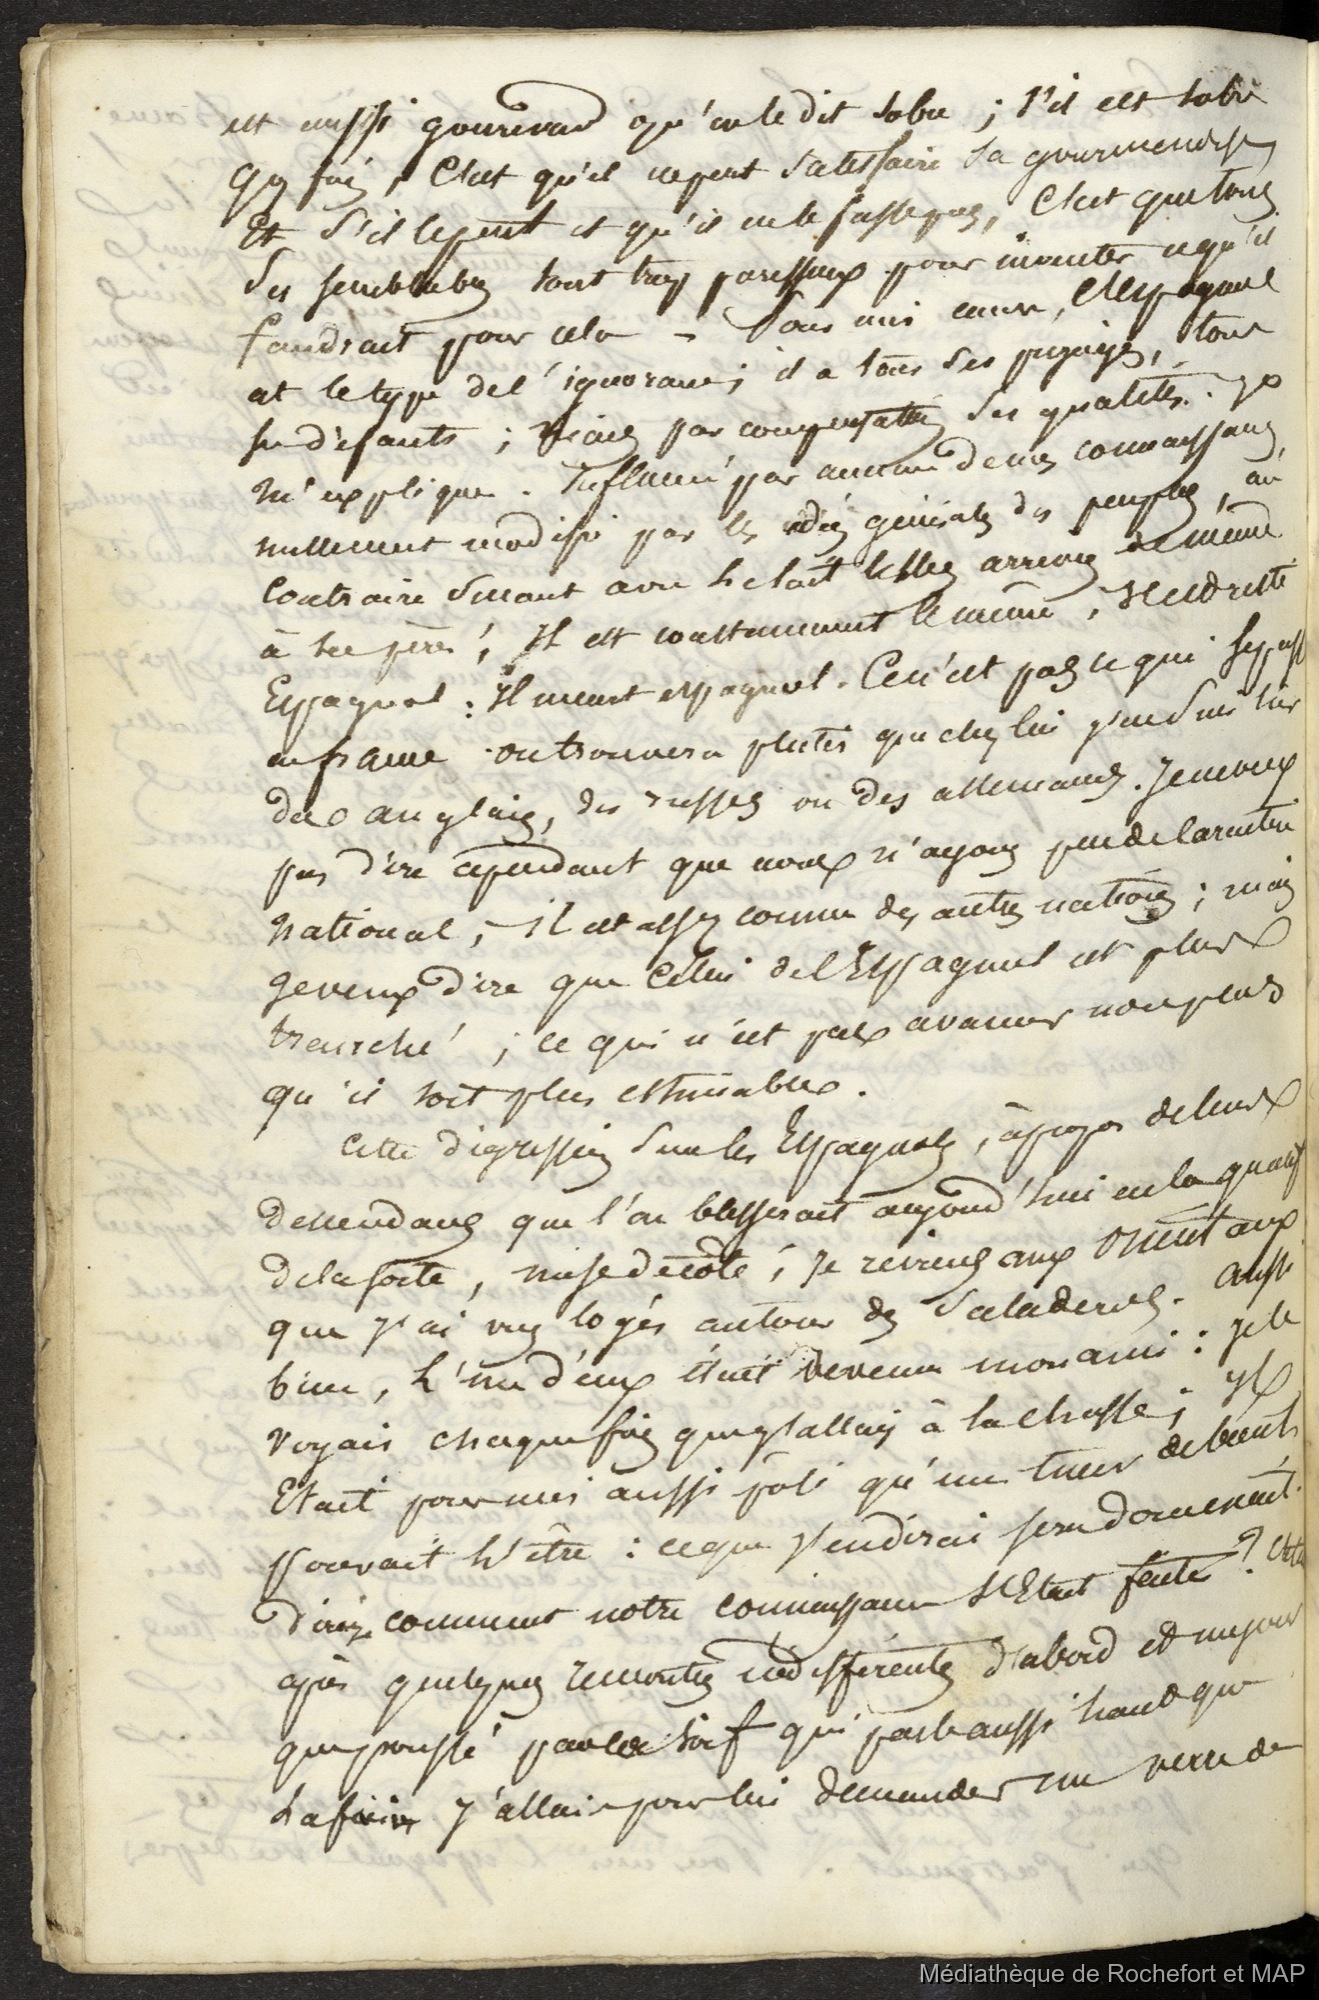 est aussi gourmand qu'on le dit sobre ; s'il est sobre
qq fois, C'est qu'il ne peut satisfaire sa gourmandise
Et s'il le peut et qu'il ne le fasse pas, C'est que tous
ses semblables sont trop paresseux pour inventer ce qu'il
faudrait pour cela — l'Espagnol
est le type de l'ignorance ; il a tous ses préjugés, tous
ses défauts ; mais par compensation ses qualités. je
m'explique. Influencé par aucune de nos connaissances,
nullement modifié par les idées générales des peuples, au
contraire suivant avec
à ses pères, Il est constamment le même ;
Espagnol : Il meurt espagnol. Ce n'est pas ce qui se passe
en france on trouvera plutôt que chez lui j'en suis sûr
des anglais, des russes ou des allemands. Je ne veux
pas dire cependant que nous n'ayons pas de caractère
national, il est assez connu des autres nations ; mais
je veux dire que celui de l'Espagnol est plus
tranché ; ce qui n'est pas avancer non plus
qu'il soit plus estimable.
Cette digression sur les Espagnols, à propos de leurs
descendans que l'on blesserait aujourd'hui en les qualift
de la sorte, mise de côté, je reviens aux Orientaux
que j'ai vus logés autour des Saladeros. Aussi
bien, L'un d'eux était devenu mon ami : je le
voyais chaque fois que j'allais à la chasse ; Il
Etait pour moi aussi poli qu'un tueur de bœufs
pouvait l'être : ce que j'en dirai sera
dirai comment notre connaissance s'Etait faite ?
après quelques rencontres indifférentes d'abord et un jour
que poussé par la soif qui parle aussi haut que
La faim j'allais pour lui demander un verre de
Médiathèque de Rochefort et MAP